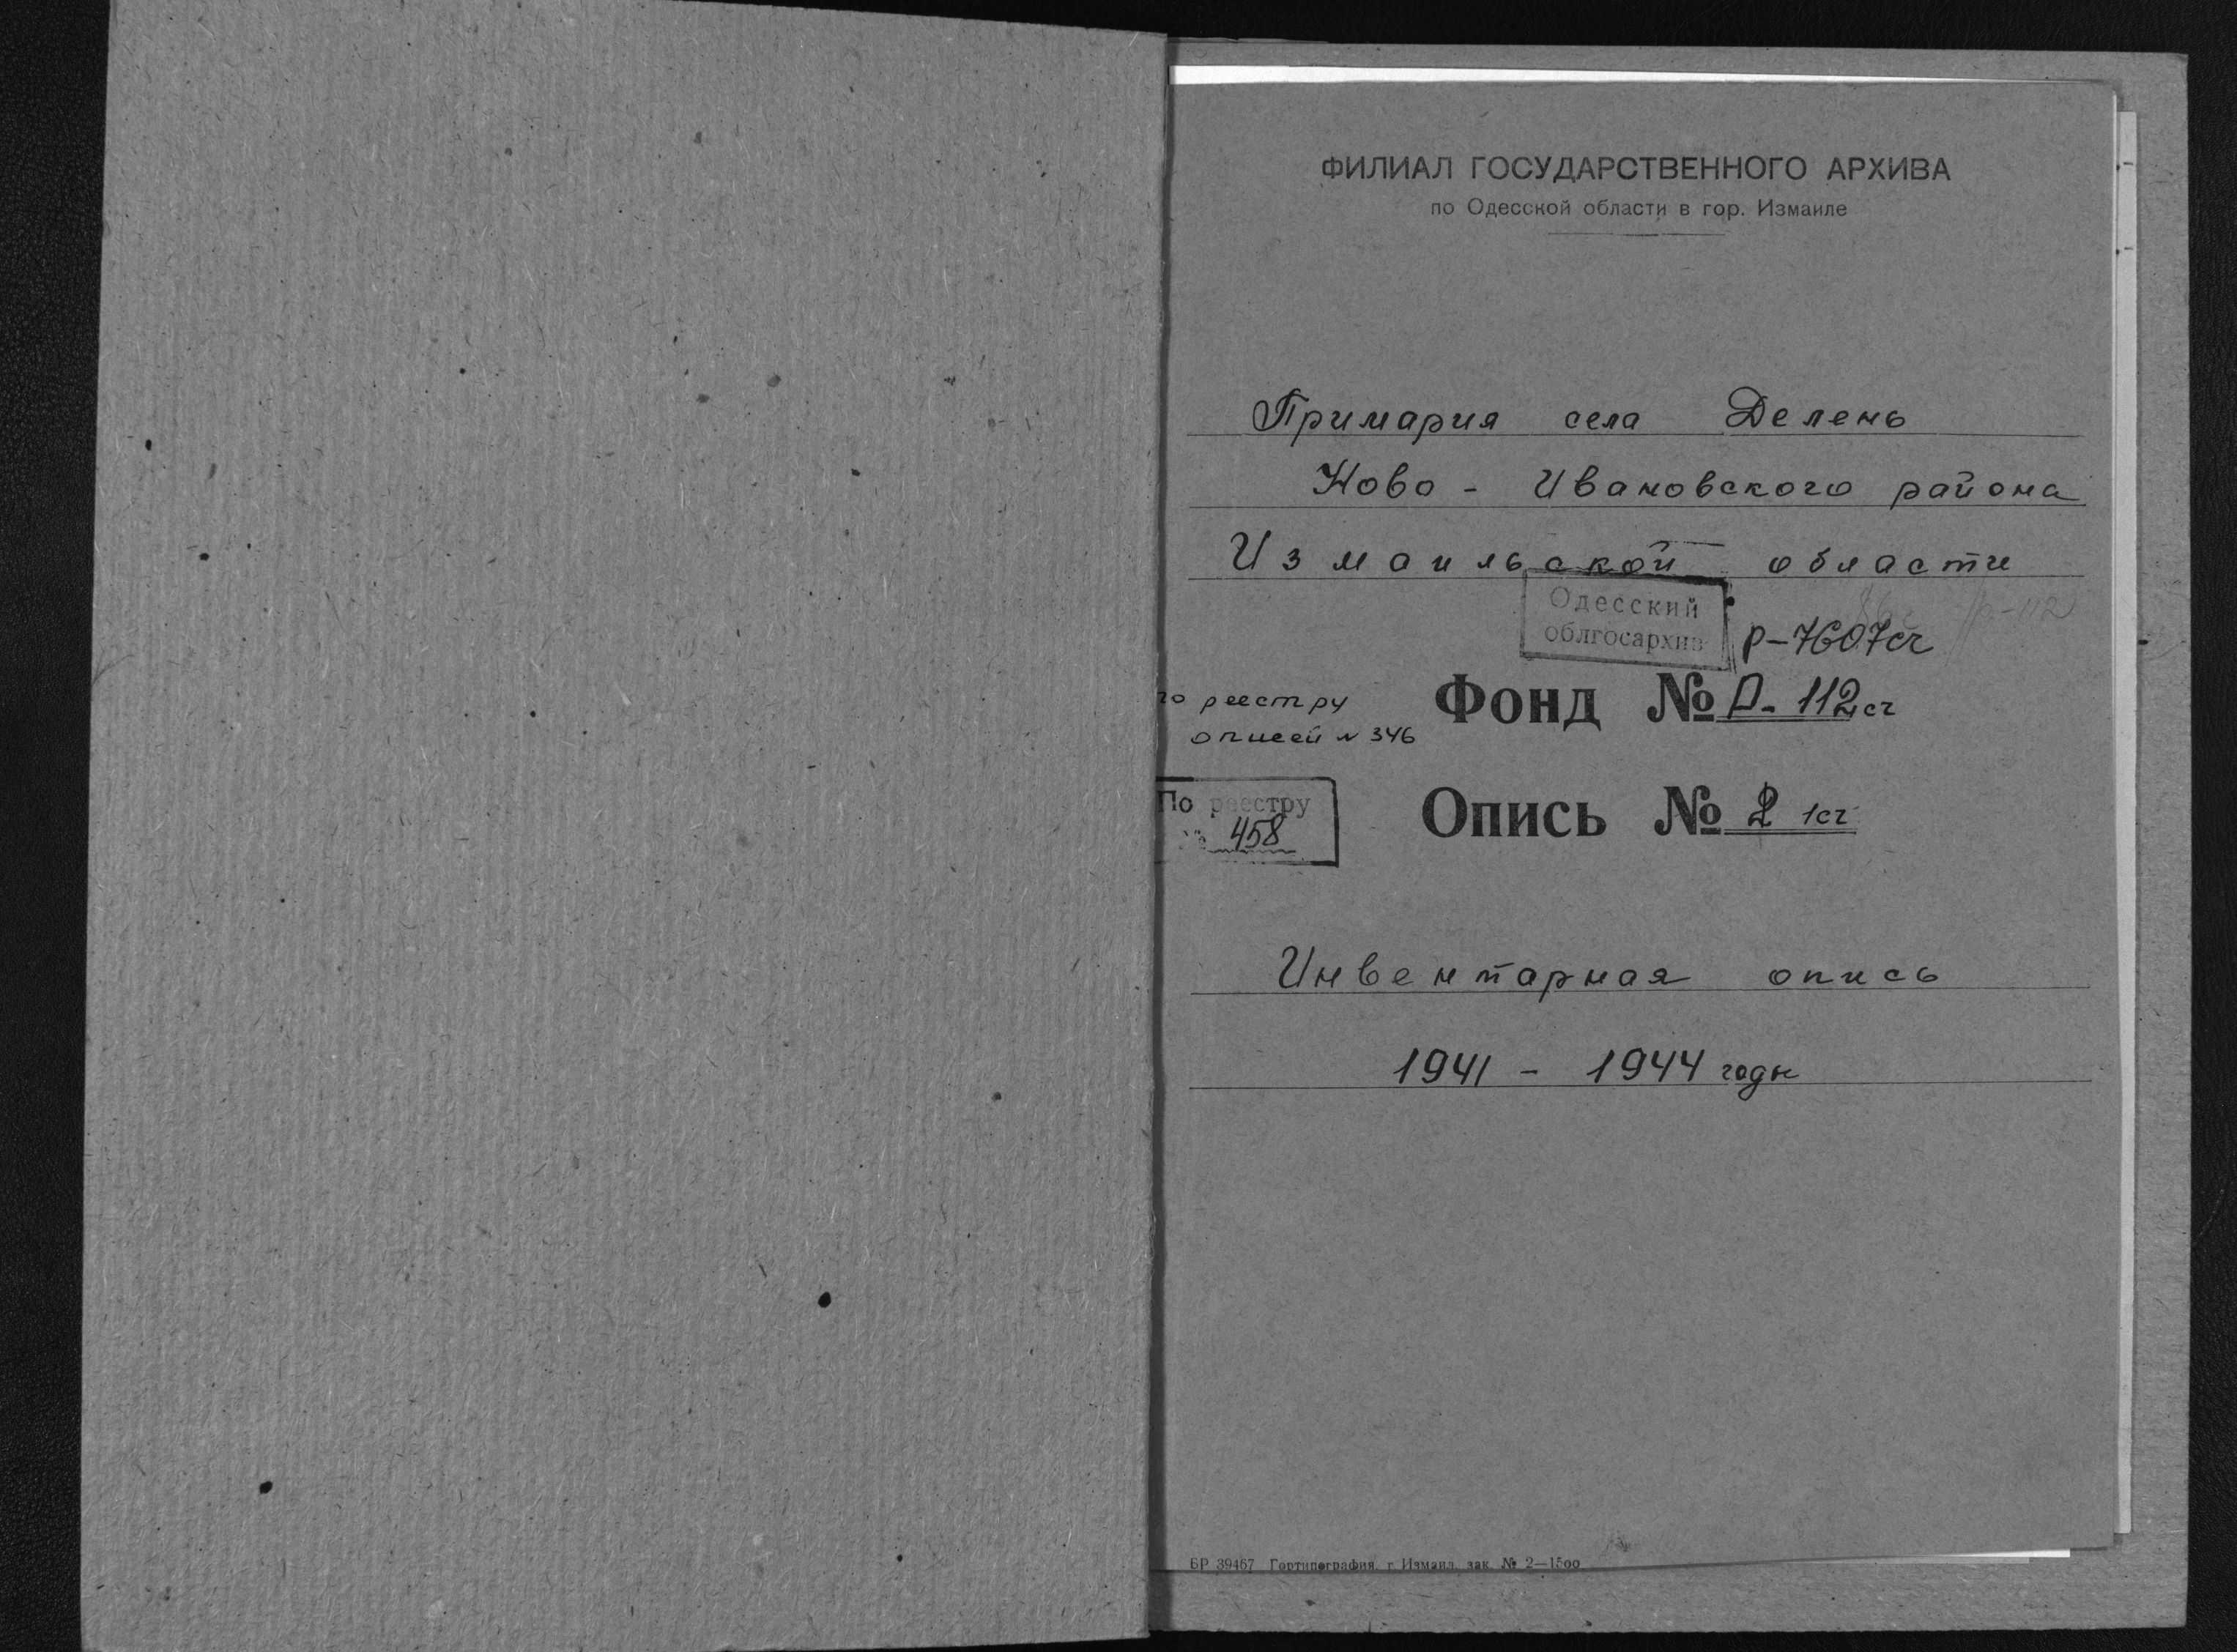 ФИЛИАЛ ГОСУДАРСТВЕННОГО АРХИВА
по Одесской области в гор. Измаиле
Примария села Делень
Ново - Ивановского района
Измаильской области
Одесский
облгосархив
р-7607сч
р-112
го реестру
описей N 346
Фонд № Р-112сч
По реестру
№ 458
Опись № 2 1сч
Инвентарная опись
1941 - 1944 годы
БР 39467 Гортипография, г. Измаил, зак. № 2—1500